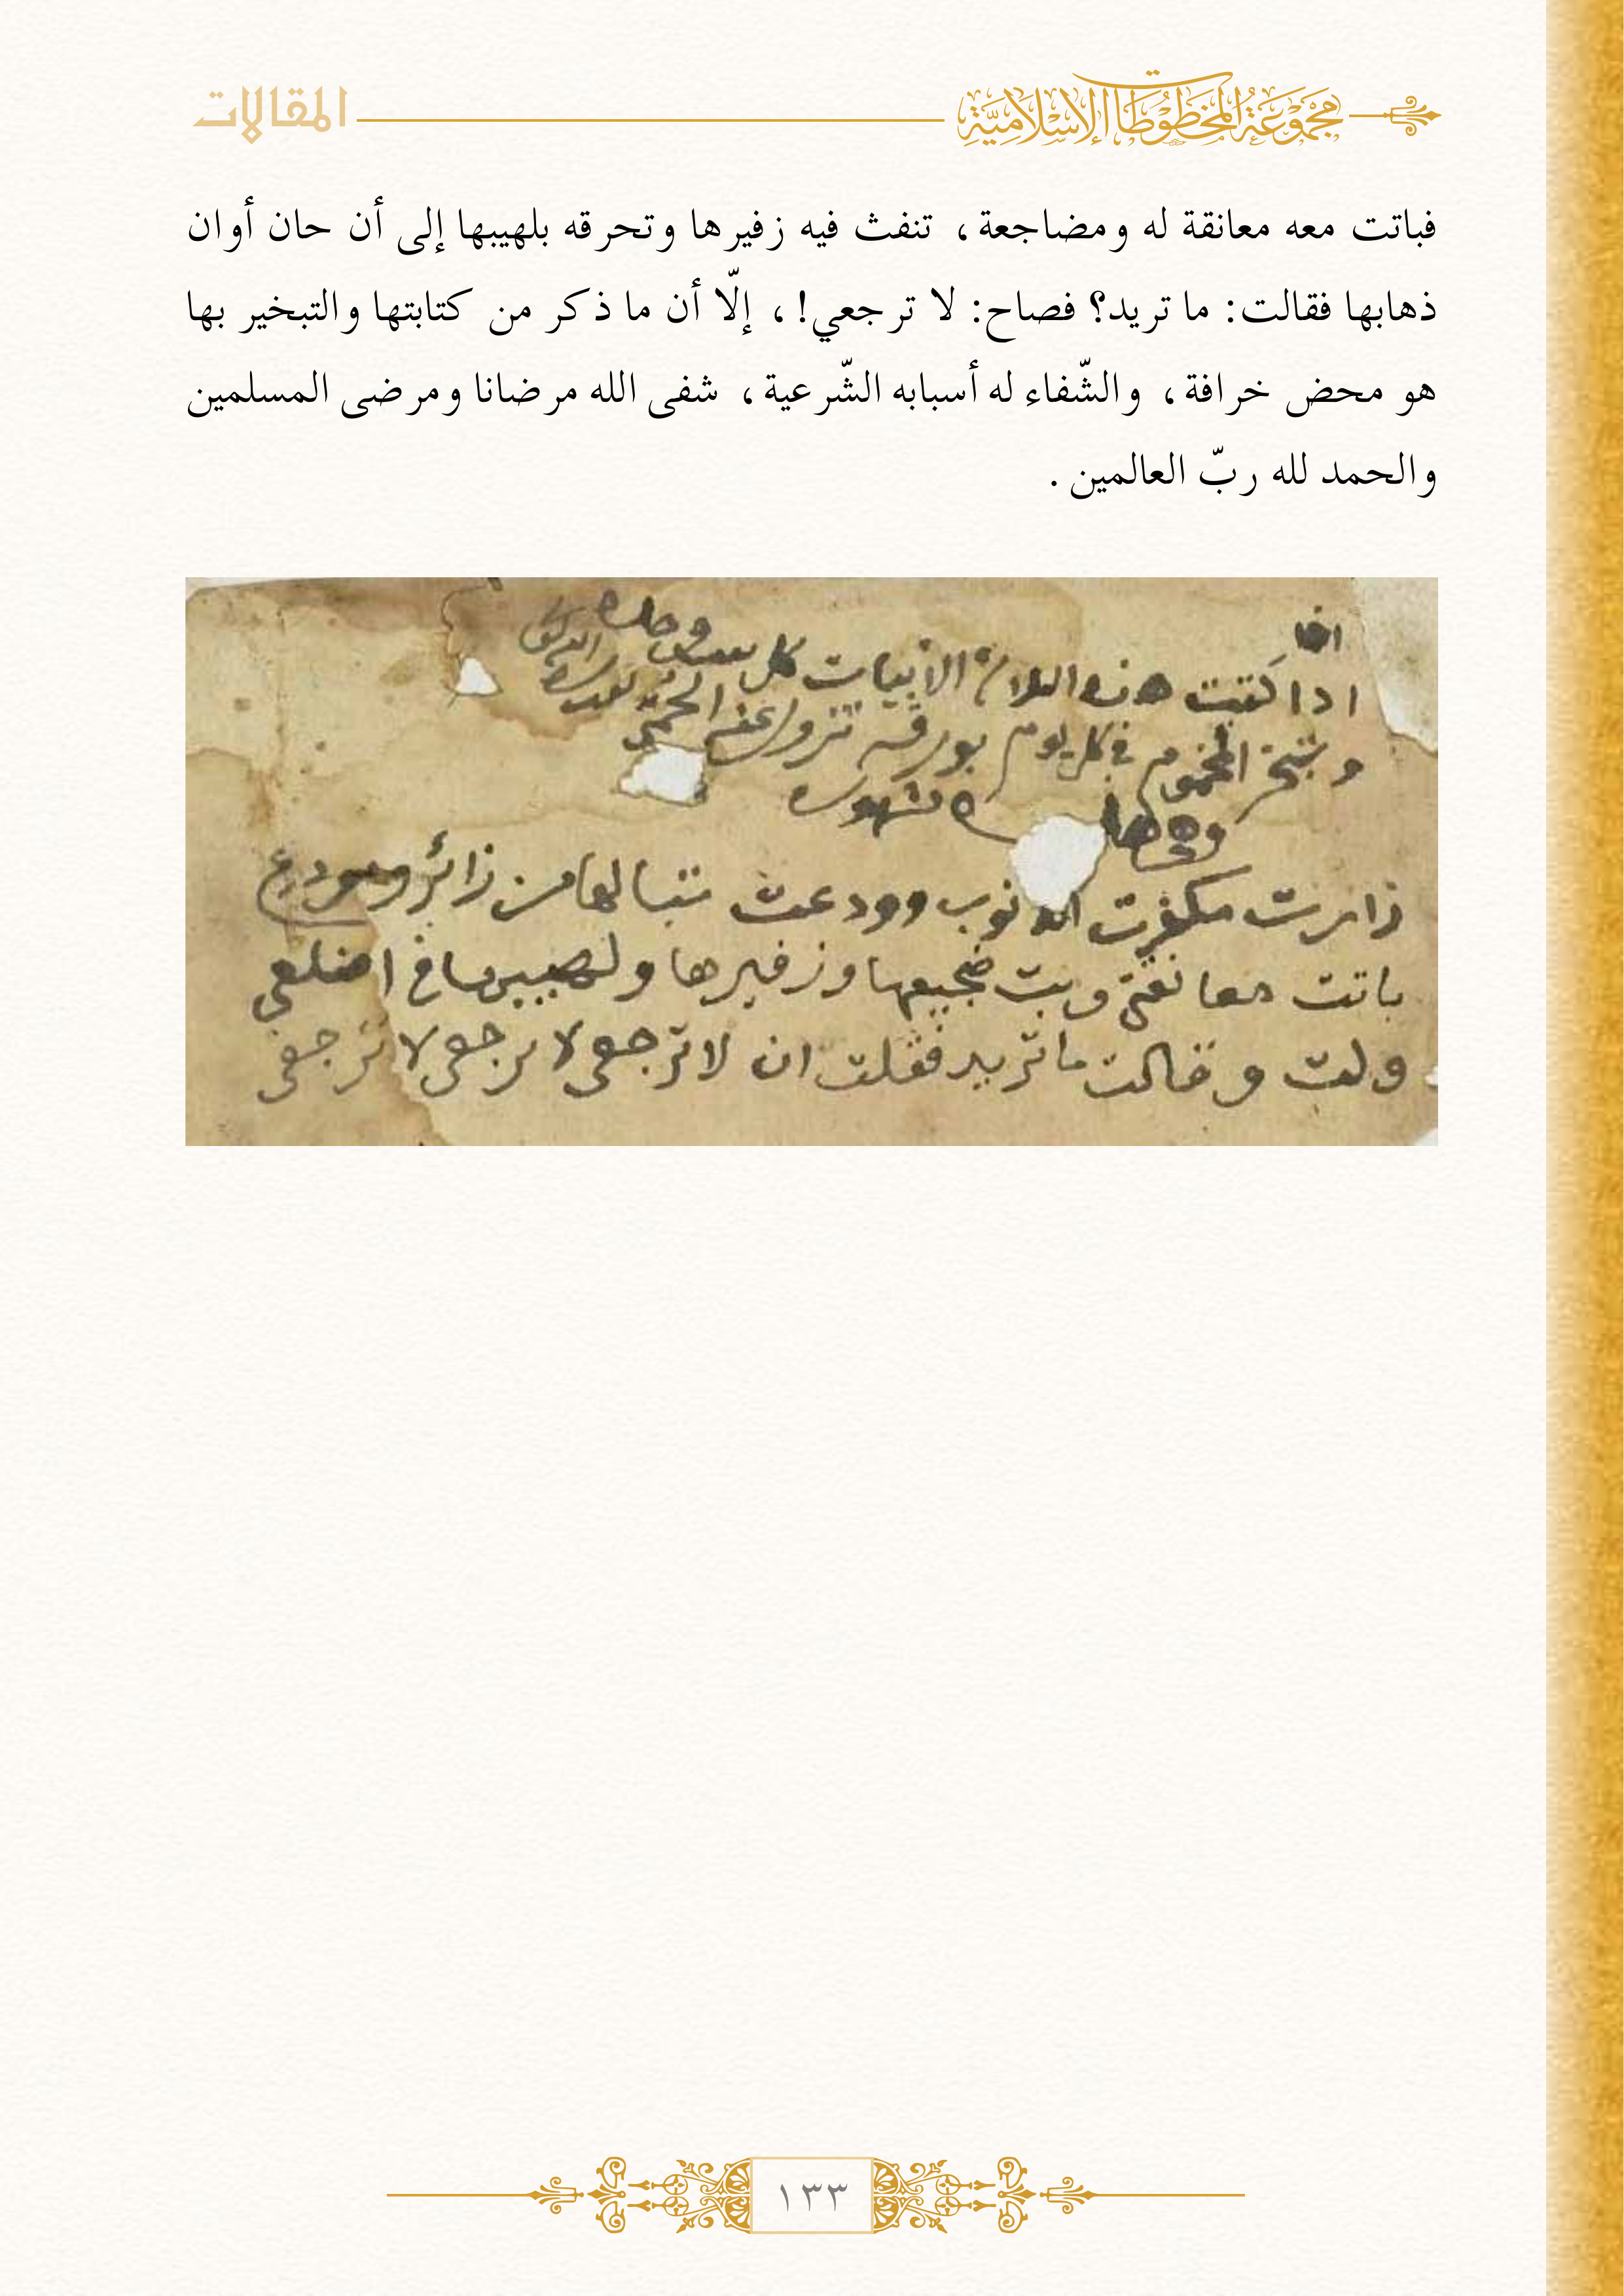 مجموعة المخطوطات الإسلامية
المقالات
فباتت معه معانقة له ومضاجعة، تنفث فيه زفيرها وتحرقه بلهيبها إلى أن حان أوان
ذهابها فقالت: ما تريد؟ فصاح: لا ترجعي!، إلّا أن ما ذكر من كتابتها والتبخير بها
هو محض خرافة، والشّفاء له أسبابه الشّرعية، شفى الله مرضانا ومرضى المسلمين
والحمد لله ربّ العالمين .
اذا كتبت هذه الابيات كل
وحده
و بتبخر المحموم في كل يوم بورقه تزول عنه الحمى
زارت مكفرت نوب وودعت تبا لها من زائر ومودع
باتت معانقتي وبت ضجيعها وزفيرها ولهيبها في اضلعي
ولت وقالت ما تريد فقلت ان لا ترجعي لا ترجعي لا ترجعي
١٣٣